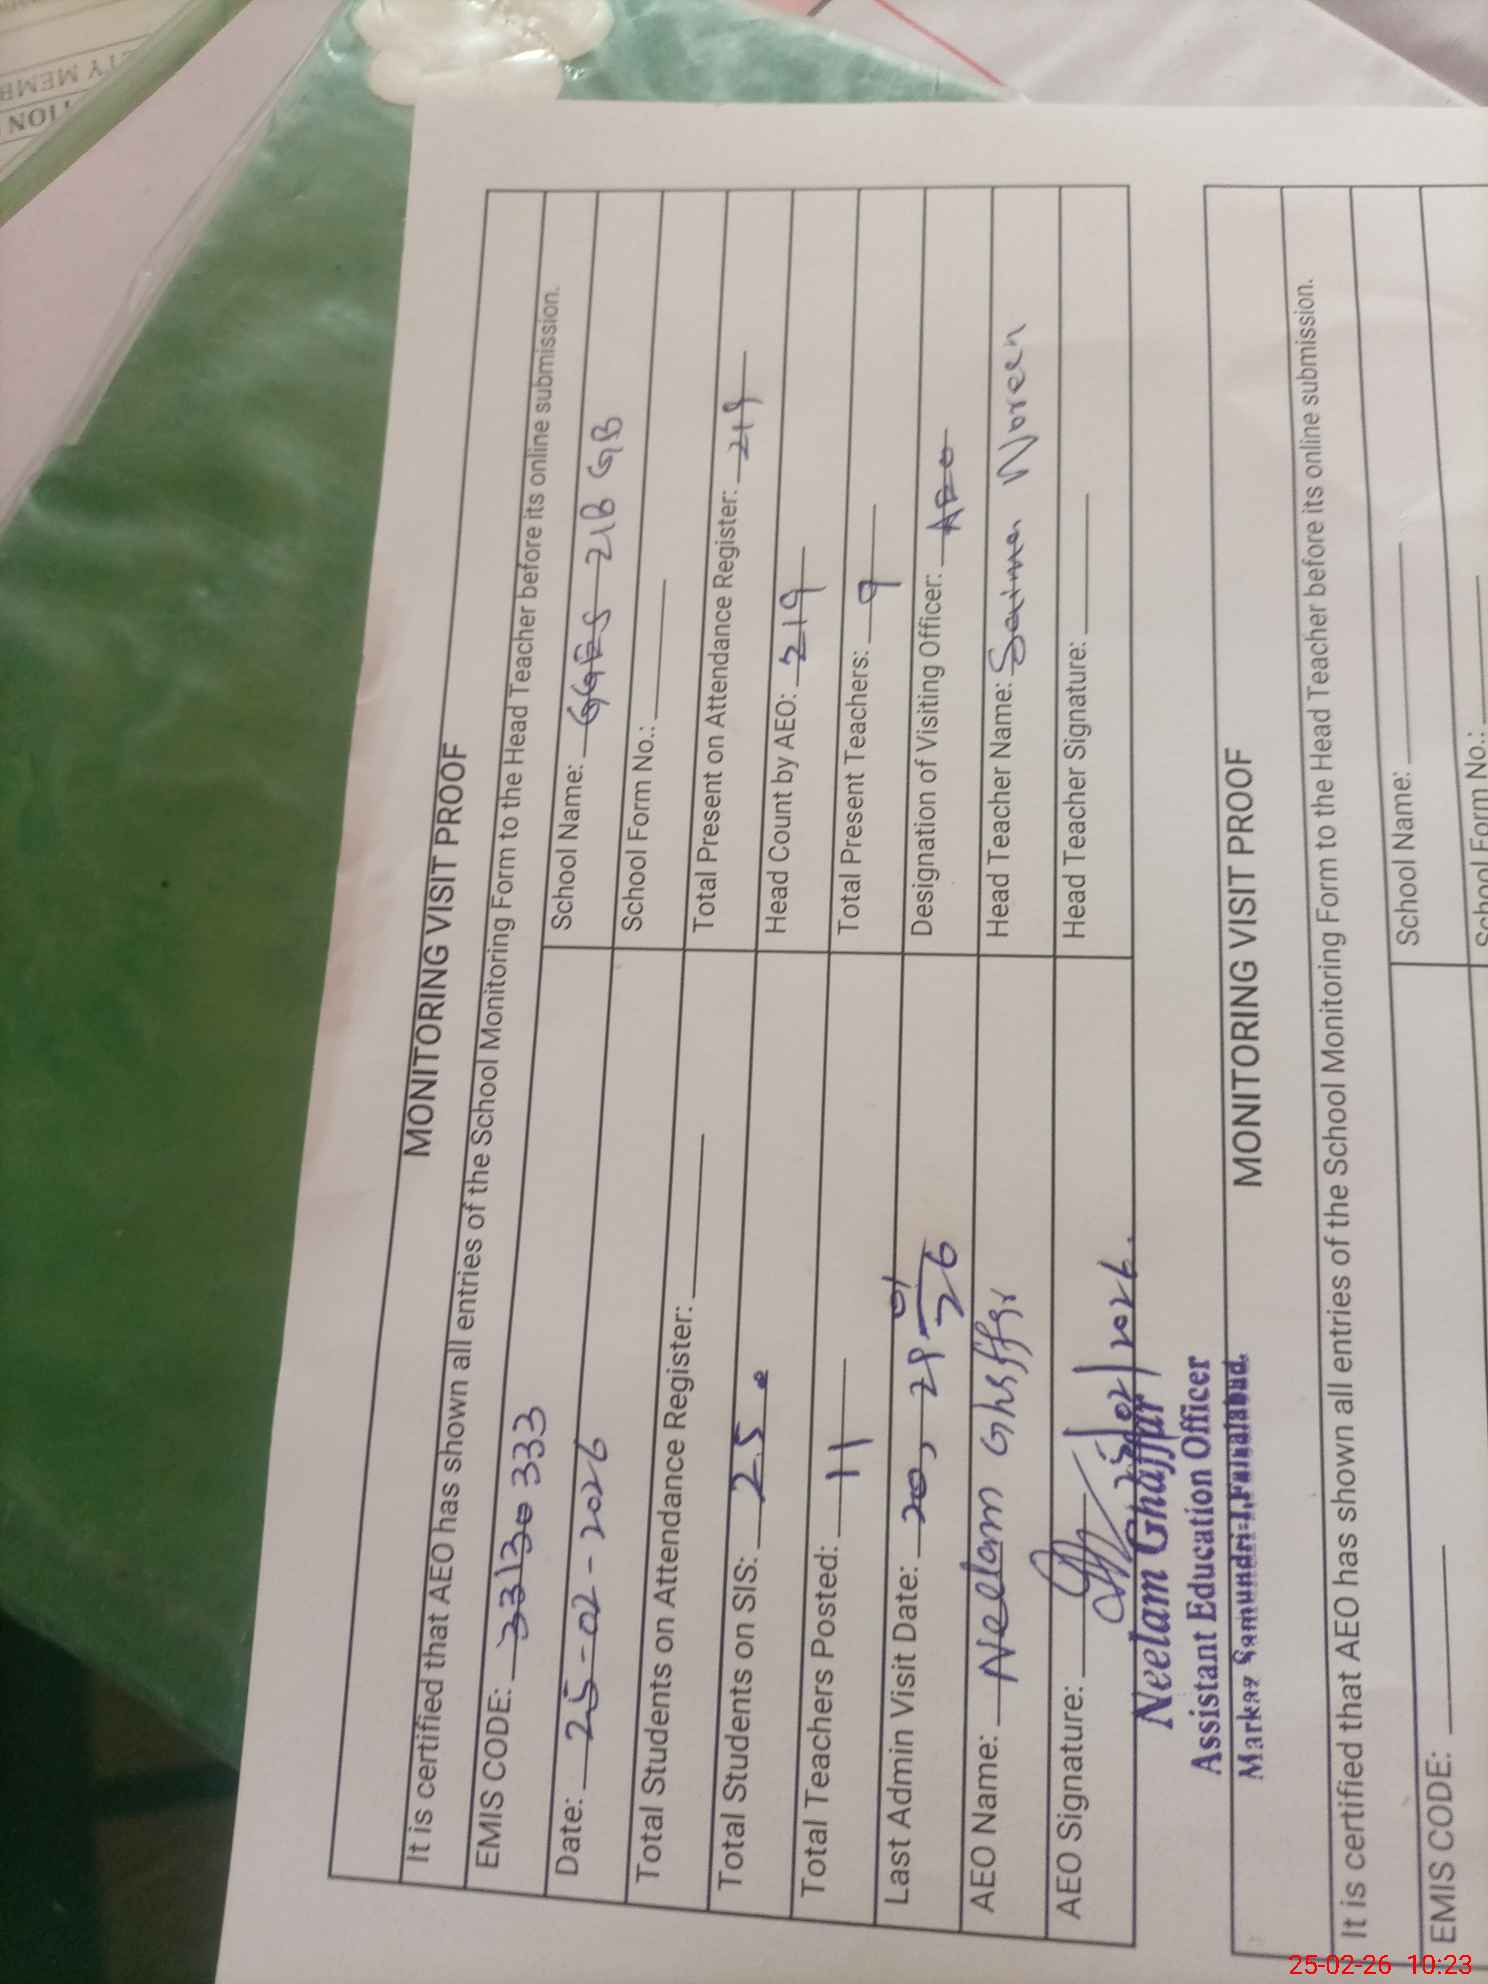 MONITORING VISIT PROOF
It is certified that AEO has shown all entries of the School Monitoring Form to the Head Teacher before its online submission.
EMIS CODE: 33130333
School Name: GGES 21B GB
Date: 25-02-2026
School Form No.:
Total Students on Attendance Register:
Total Present on Attendance Register: 219
Total Students on SIS: 250
Head Count by AEO: 219
Total Teachers Posted: 11
Total Present Teachers: 9
Last Admin Visit Date: 20, 29 01 26
Designation of Visiting Officer: AEO
AEO Name: Neelam Ghaffar
Head Teacher Name: Saima Noreen
AEO Signature: 2026.
Head Teacher Signature:
Neelam Ghaffar
Assistant Education Officer
Markaz Samundri-I, Faisalabad.
MONITORING VISIT PROOF
It is certified that AEO has shown all entries of the School Monitoring Form to the Head Teacher before its online submission.
EMIS CODE:
School Name:
School Form No.:
25-02-26 10:23